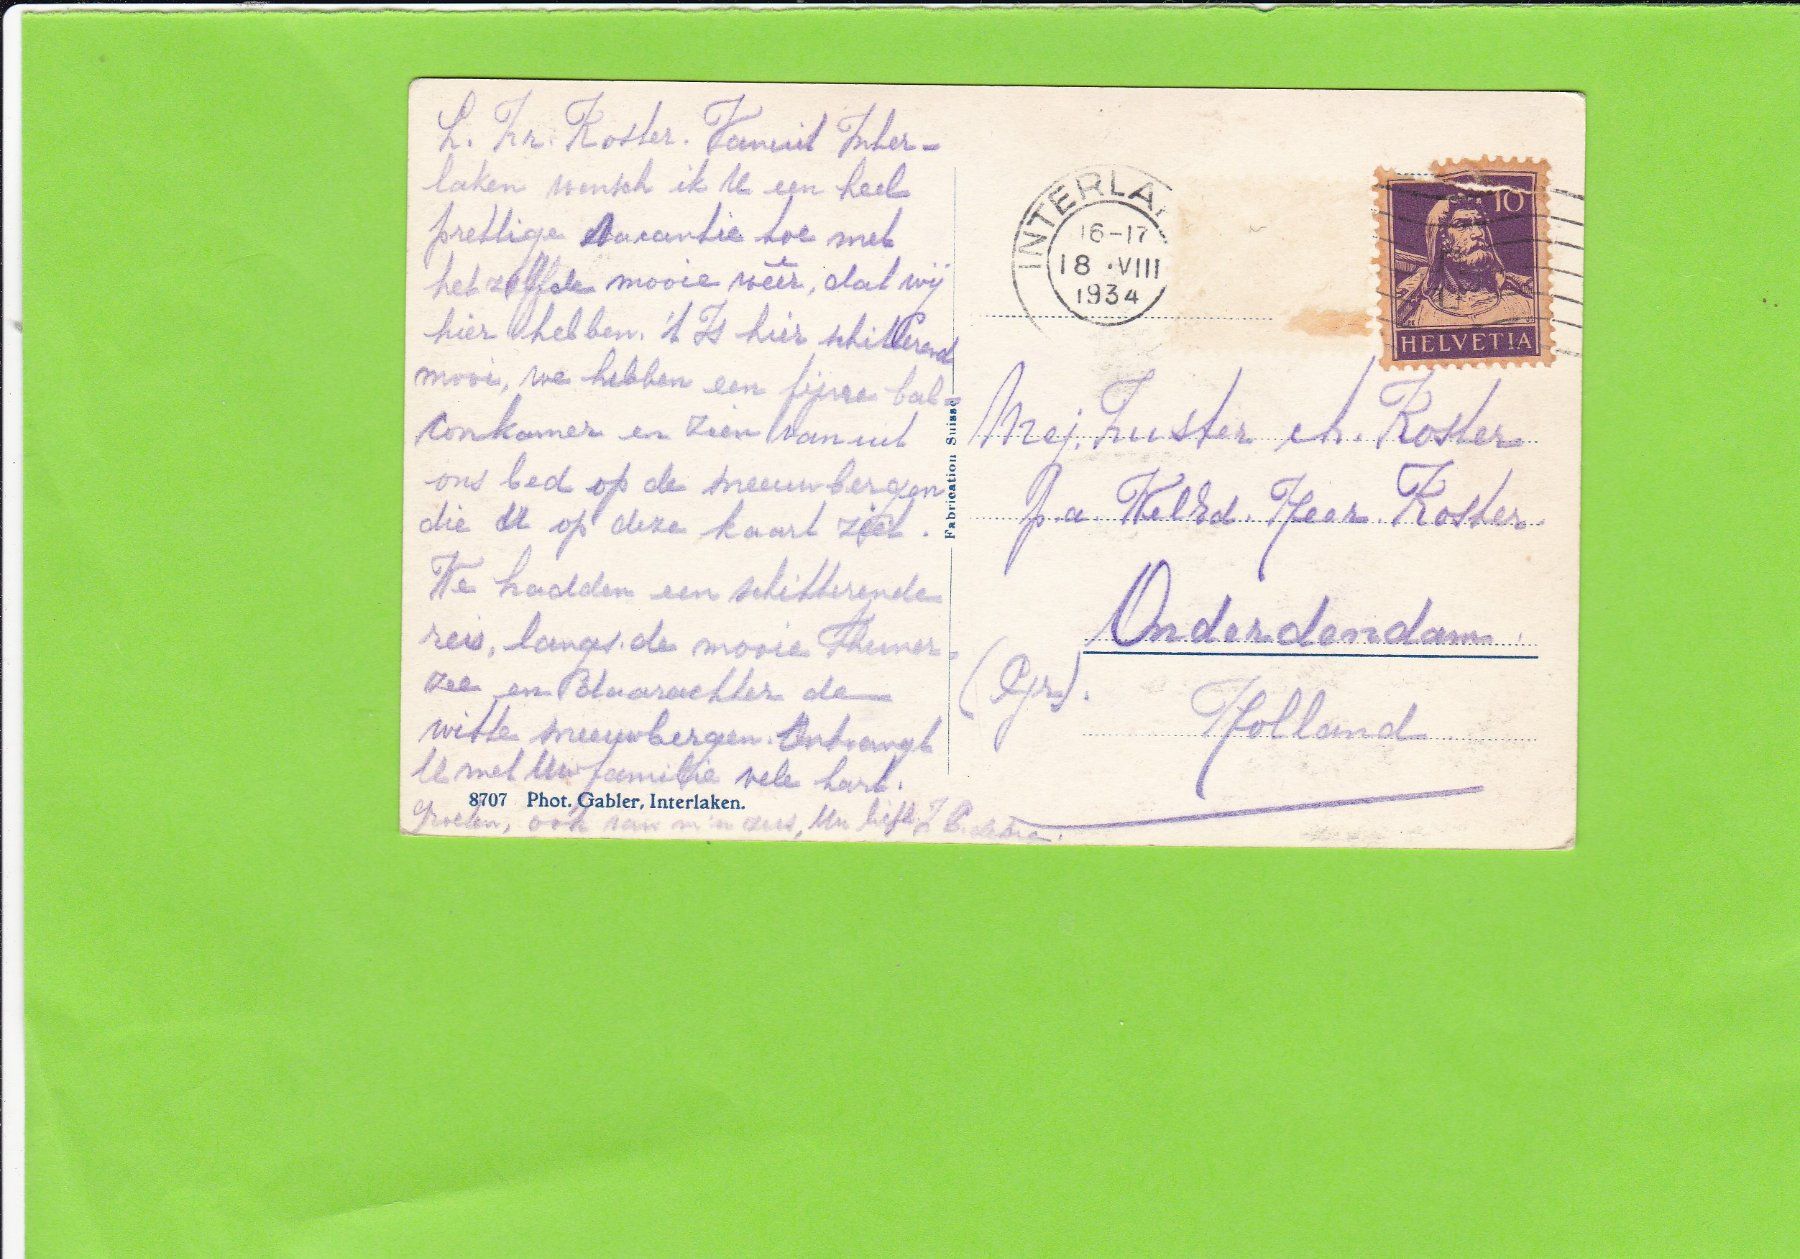 L. Zr. Koster. Vanuit Inter-
laken wensch ik U een heel
prettige vacantie toe met
hetzelfde mooie wéér, dat wij
hier hebben. 't Is hier schitterend
mooi, we hebben een fijne bal-
conkamer en zien vanuit
ons bed op de sneeuwbergen
die U op deze kaart ziet.
We hadden een schitterende
reis, langs de mooie Thuner-
zee en daarachter de
witte sneeuwbergen. Ontvangt
U met Uw familie vele hart.
groeten, ook van m'n zus, Uw liefh.
8707 Phot. Gabler, Interlaken.
Fabrication Suisse
INTERLA
16-17
18.VIII
1934
10
HELVETIA
Mej. Zuster ch. Koster
p.a. WelEd. Heer Koster
Onderdendam
(Gr).
Holland